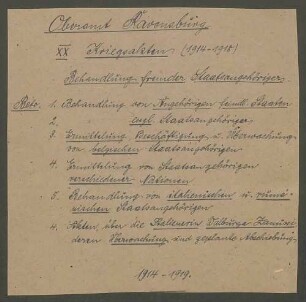 Oberamt Ravensburg
XX Kriegsakten (1914-1918)
Behandlung fremder Staatsangehöriger
Betr. 1. Behandlung von Angehörigen feindl. Staaten
2. " engl. Staatsangehöriger
3. Ermittelung, Beschäftigung u. Überwachung
von belgischen Staatsangehörigen
4. Ermittelung von Staatsangehörigen
verschiedener Nationen
5. Behandlung von italienischen u. rumä-
nischen Staatsangehörigen
6. Akten über die Kellnerin
deren Überwachung und geplante Abschiebung.
1914-1919.